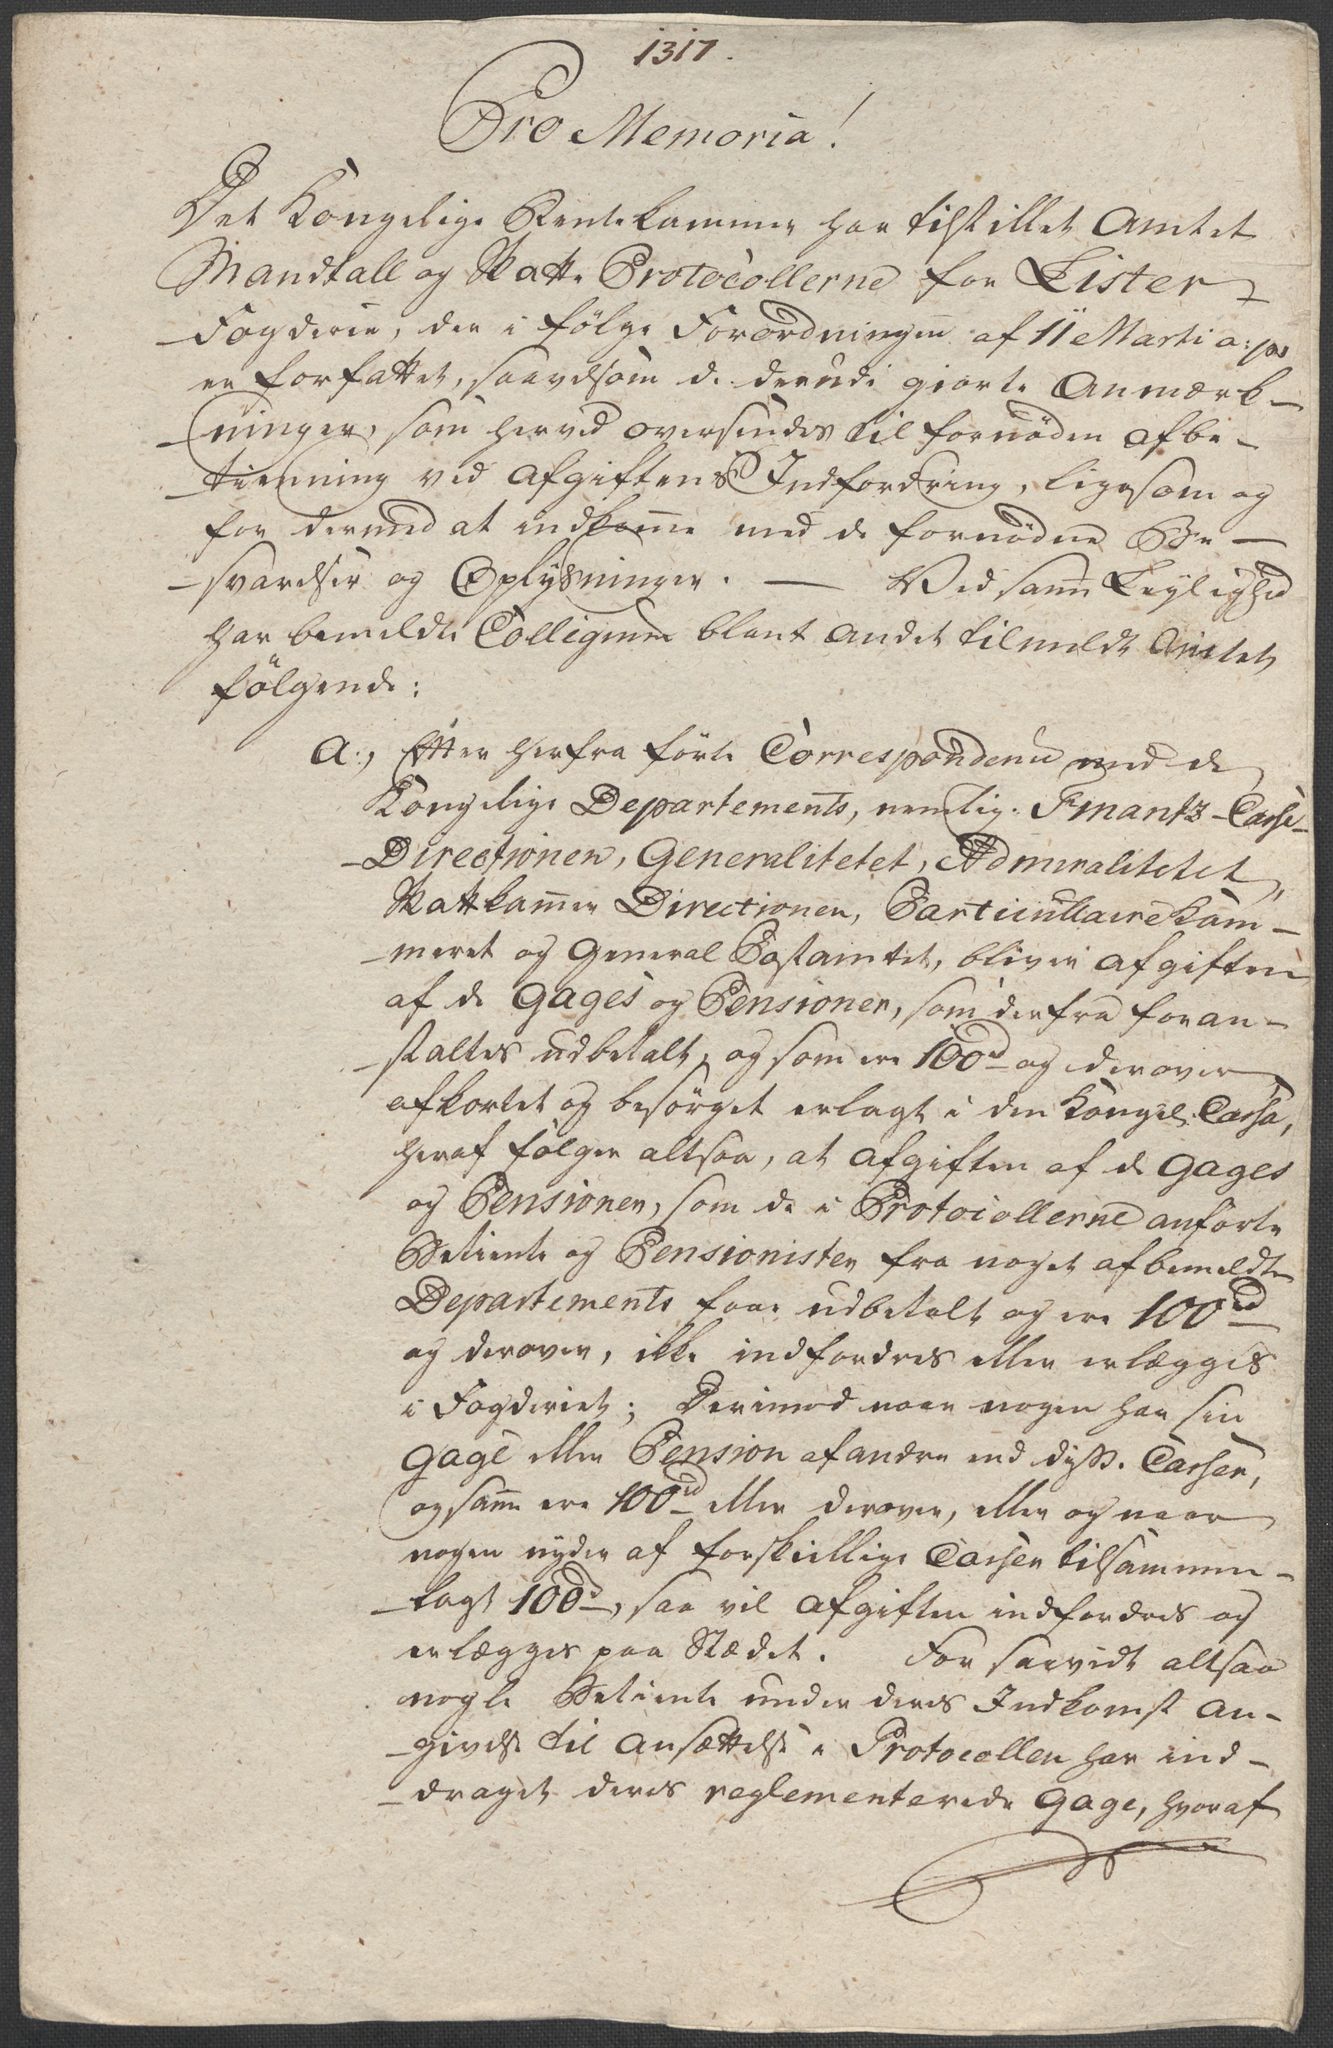 1317.
Pro Memoria!
Det Kongelige Rentekammer har tilstillet Amtet
Mandtall og Skatte Protocollerne for Lister
Fogderie, der i følge Forordningen af 11 Martii a: p:
er forfattet, saavelsom de derudi giorte Anmærk-
-ninger, som herved oversendes til fornøden afbe-
-tienning ved Afgiftens Indfordring, ligesom og
for derved at indkomme med de fornødne Be-
-svarelser og Oplysninger. — Ved samme Leylighed
har bemeldte Collegium blant andet tilmeldt Amtet
følgende:
a., Efter herfra førte Correspondence med de
Kongelige Departements, nemlig: Finantz-Casse-
-Directionen, Generalitetet, Admiralitetet,
Skatkammer Directionen, Particulairekam-
-meret og General Postamtet, bliver Afgiften
af de Gages og Pensioner, som derfra foran-
-staltes udbetalt, og som ere 100rd og derover
afkortet og besørget erlagt i den Kongel. Cassa,
heraf følger altsaa, at Afgiften af de Gages
og Pensioner, som de i Protocollerne anførte
Betiente og Pensionister fra noget af bemeldte
Departements faae udbetalt og ere 100rd
og derover, ikke indfordres eller erlægges
i Fogderiet; Derimod naar nogen har sin
Gage eller Pension af andre end disse Casser,
og samme ere 100rd eller derover, eller og naar
nogen nyder af forskiellige Casser tilsammen-
-lagt 100rd, saa vil Afgiften indfordres og
erlægges paa Stædet. For saavidt altsaa
nogle Betiente under deres Indkomst an-
-givelse til Ansættelse i Protocollen har ind-
-draget deres reglementerede Gage, hvoraf